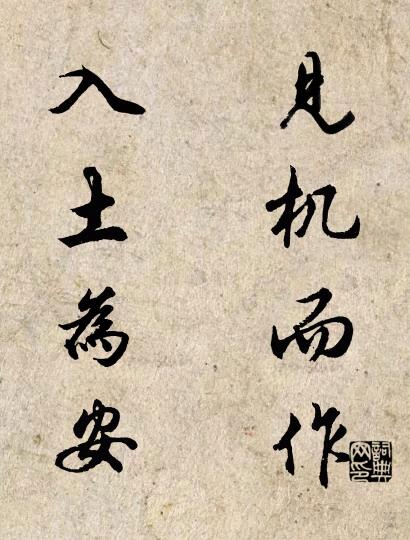 见机而作
入土為安
詞典网印